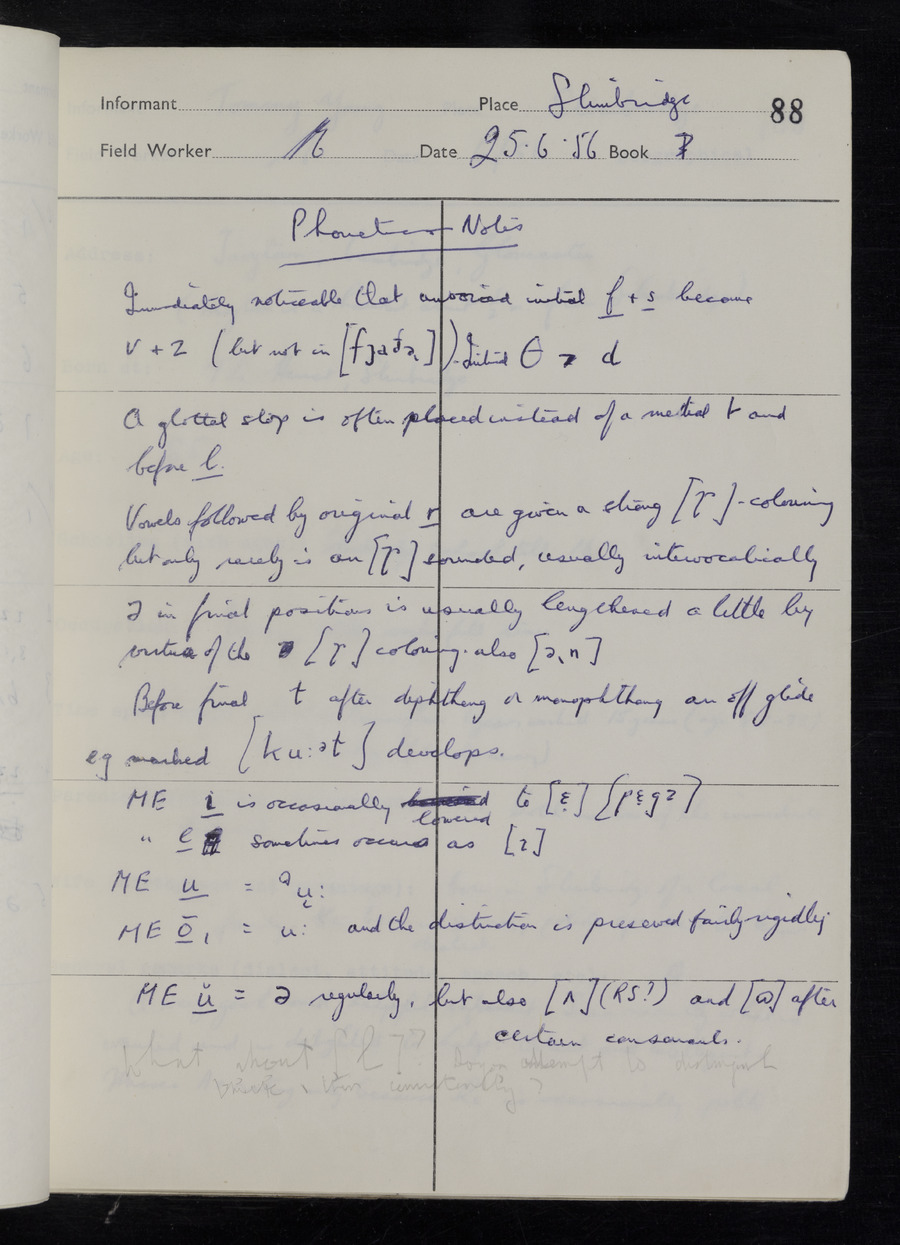 Informant Place Slimbridge 88
Field Worker Date 25.6.56 Book 7
Phonetic Notes
Immediately noticeable that unvoiced initial f + s become
v + z (but not in ). Initial θ > d
A glottal stop is often placed instead of a medial t and
before l.
Vowels followed by original r are given a strong [ɽ]-colouring
but only rarely is an [ɽ] sounded, usually intervocalically
ə in final positions is usually lengthened a little by
virtue of the [ɽ] colouring. also [ə̢n]
Before final t after diphthong or monophthong an off glide
eg marked [ku:ᵊt] develops.
ME i is occasionally lowered to [ɛ̣] [pɛ̣gz]
" e sometimes occurs as [ɪ]
ME u =
ME ō₁ = u: and the distinction is preserved fairly rigidly
ME ŭ = ə regularly, but also [ʌ] (RS?) and [ɷ] after
certain consonants.
What about [l]? Do you attempt to distinguish
consistently?